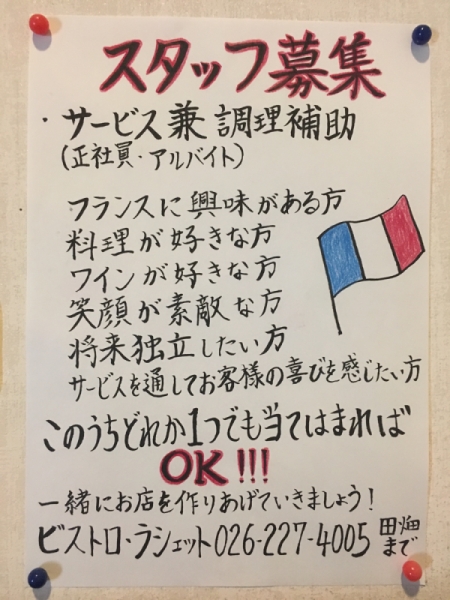 スタッフ募集
・サービス兼調理補助
(正社員・アルバイト)
フランスに興味がある方
料理が好きな方
ワインが好きな方
笑顔が素敵な方
将来独立したい方
サービスを通してお客様の喜びを感じたい方
このうちどれか1つでも当てはまれば
OK!!!
一緒にお店を作りあげていきましょう!
ビストロ・ラシェット026-227-4005 田畑まで